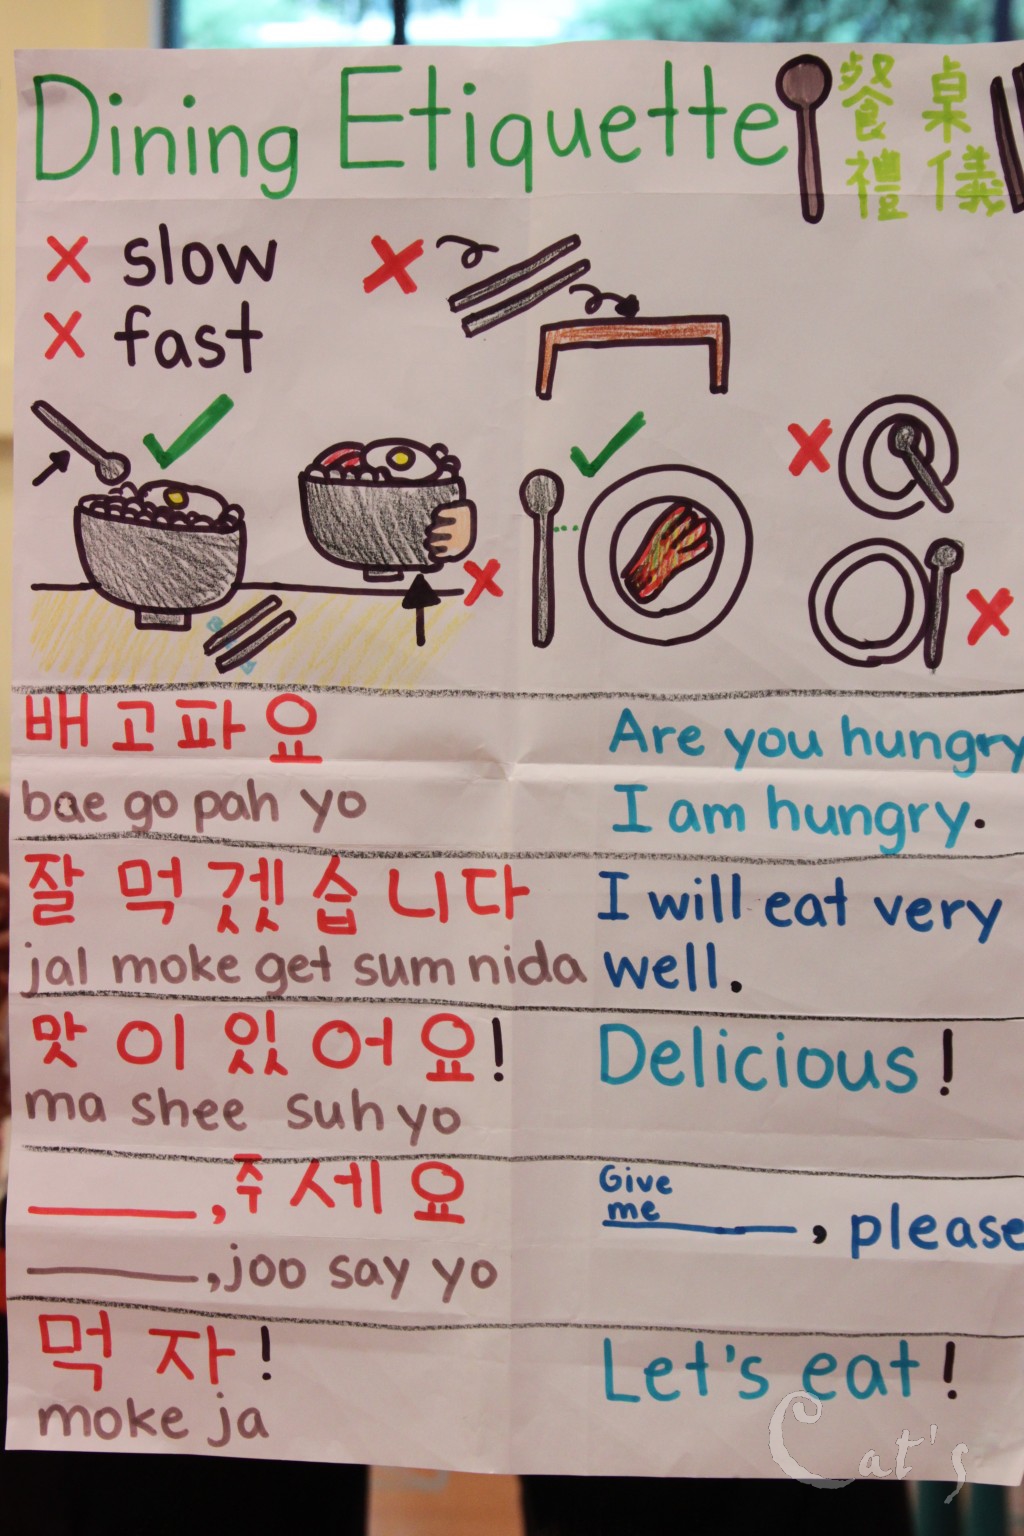 Dining Etiquette
餐桌
禮儀
slow
fast
배고파요
Are you hungry
bae go pah yo
I am hungry.
잘 먹겠습니다
I will eat very
jal moke get sum nida
well.
맛이있어요!
Delicious!
ma shee suh yo
____,주세요
Give
me ____, please
____,joo say yo
먹자!
Let's eat!
moke ja
Cat's